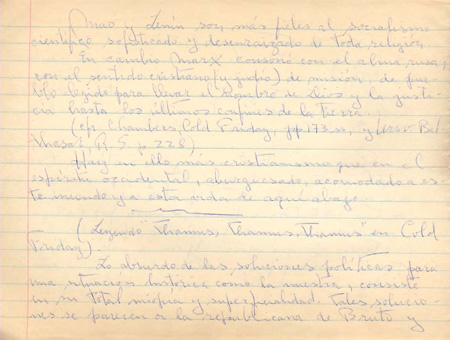 Mao y Lenin son más fieles al socialismo
científico sofisticado y desenraizado de toda religión.
En cambio Marx consonó con el alma rusa,
con el sentido cristiano (y judío) de misión, de pue-
blo elegido para llevar el nombre de Dios y la justi-
cia hasta los últimos confines de la tierra.
(cfr. Chambers, Cold Friday, pp. 173 ss, y
R, S, p. 228)
Hay en ello más cristianismo que en el
espíritu occidental, aburguesado, acomodado a es-
te mundo y a esta vida de aquí abajo.
(Leyendo "Thamus, Thamus, Thamus" en Cold
Friday).
Lo absurdo de las soluciones políticas para
una situación histórica como la nuestra, consiste
en su total miopía y superficialidad. Tales solucio-
nes se parecen a la republicana de Bruto y